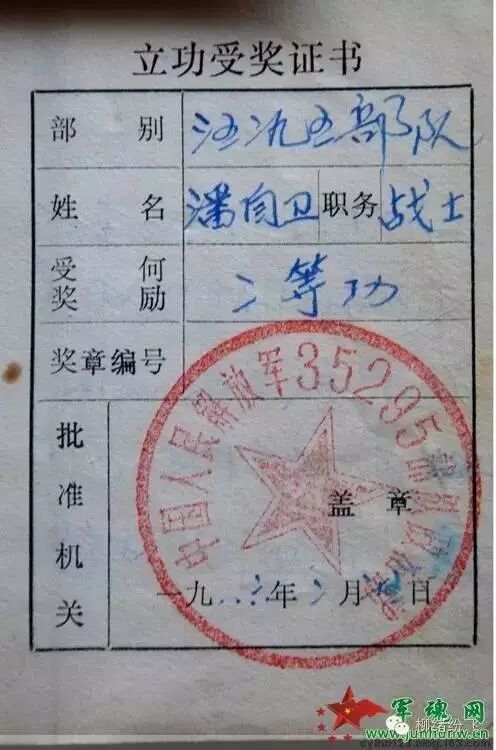 立功受奖证书
部别 江九五部队
姓名 潘自卫 职务 战士
受何奖励 二等功
奖章编号
批准机关
中国人民解放军35295部队
盖章
一九八六年二月 日
军魂网
www.junhunw.cn
柳绪纷飞